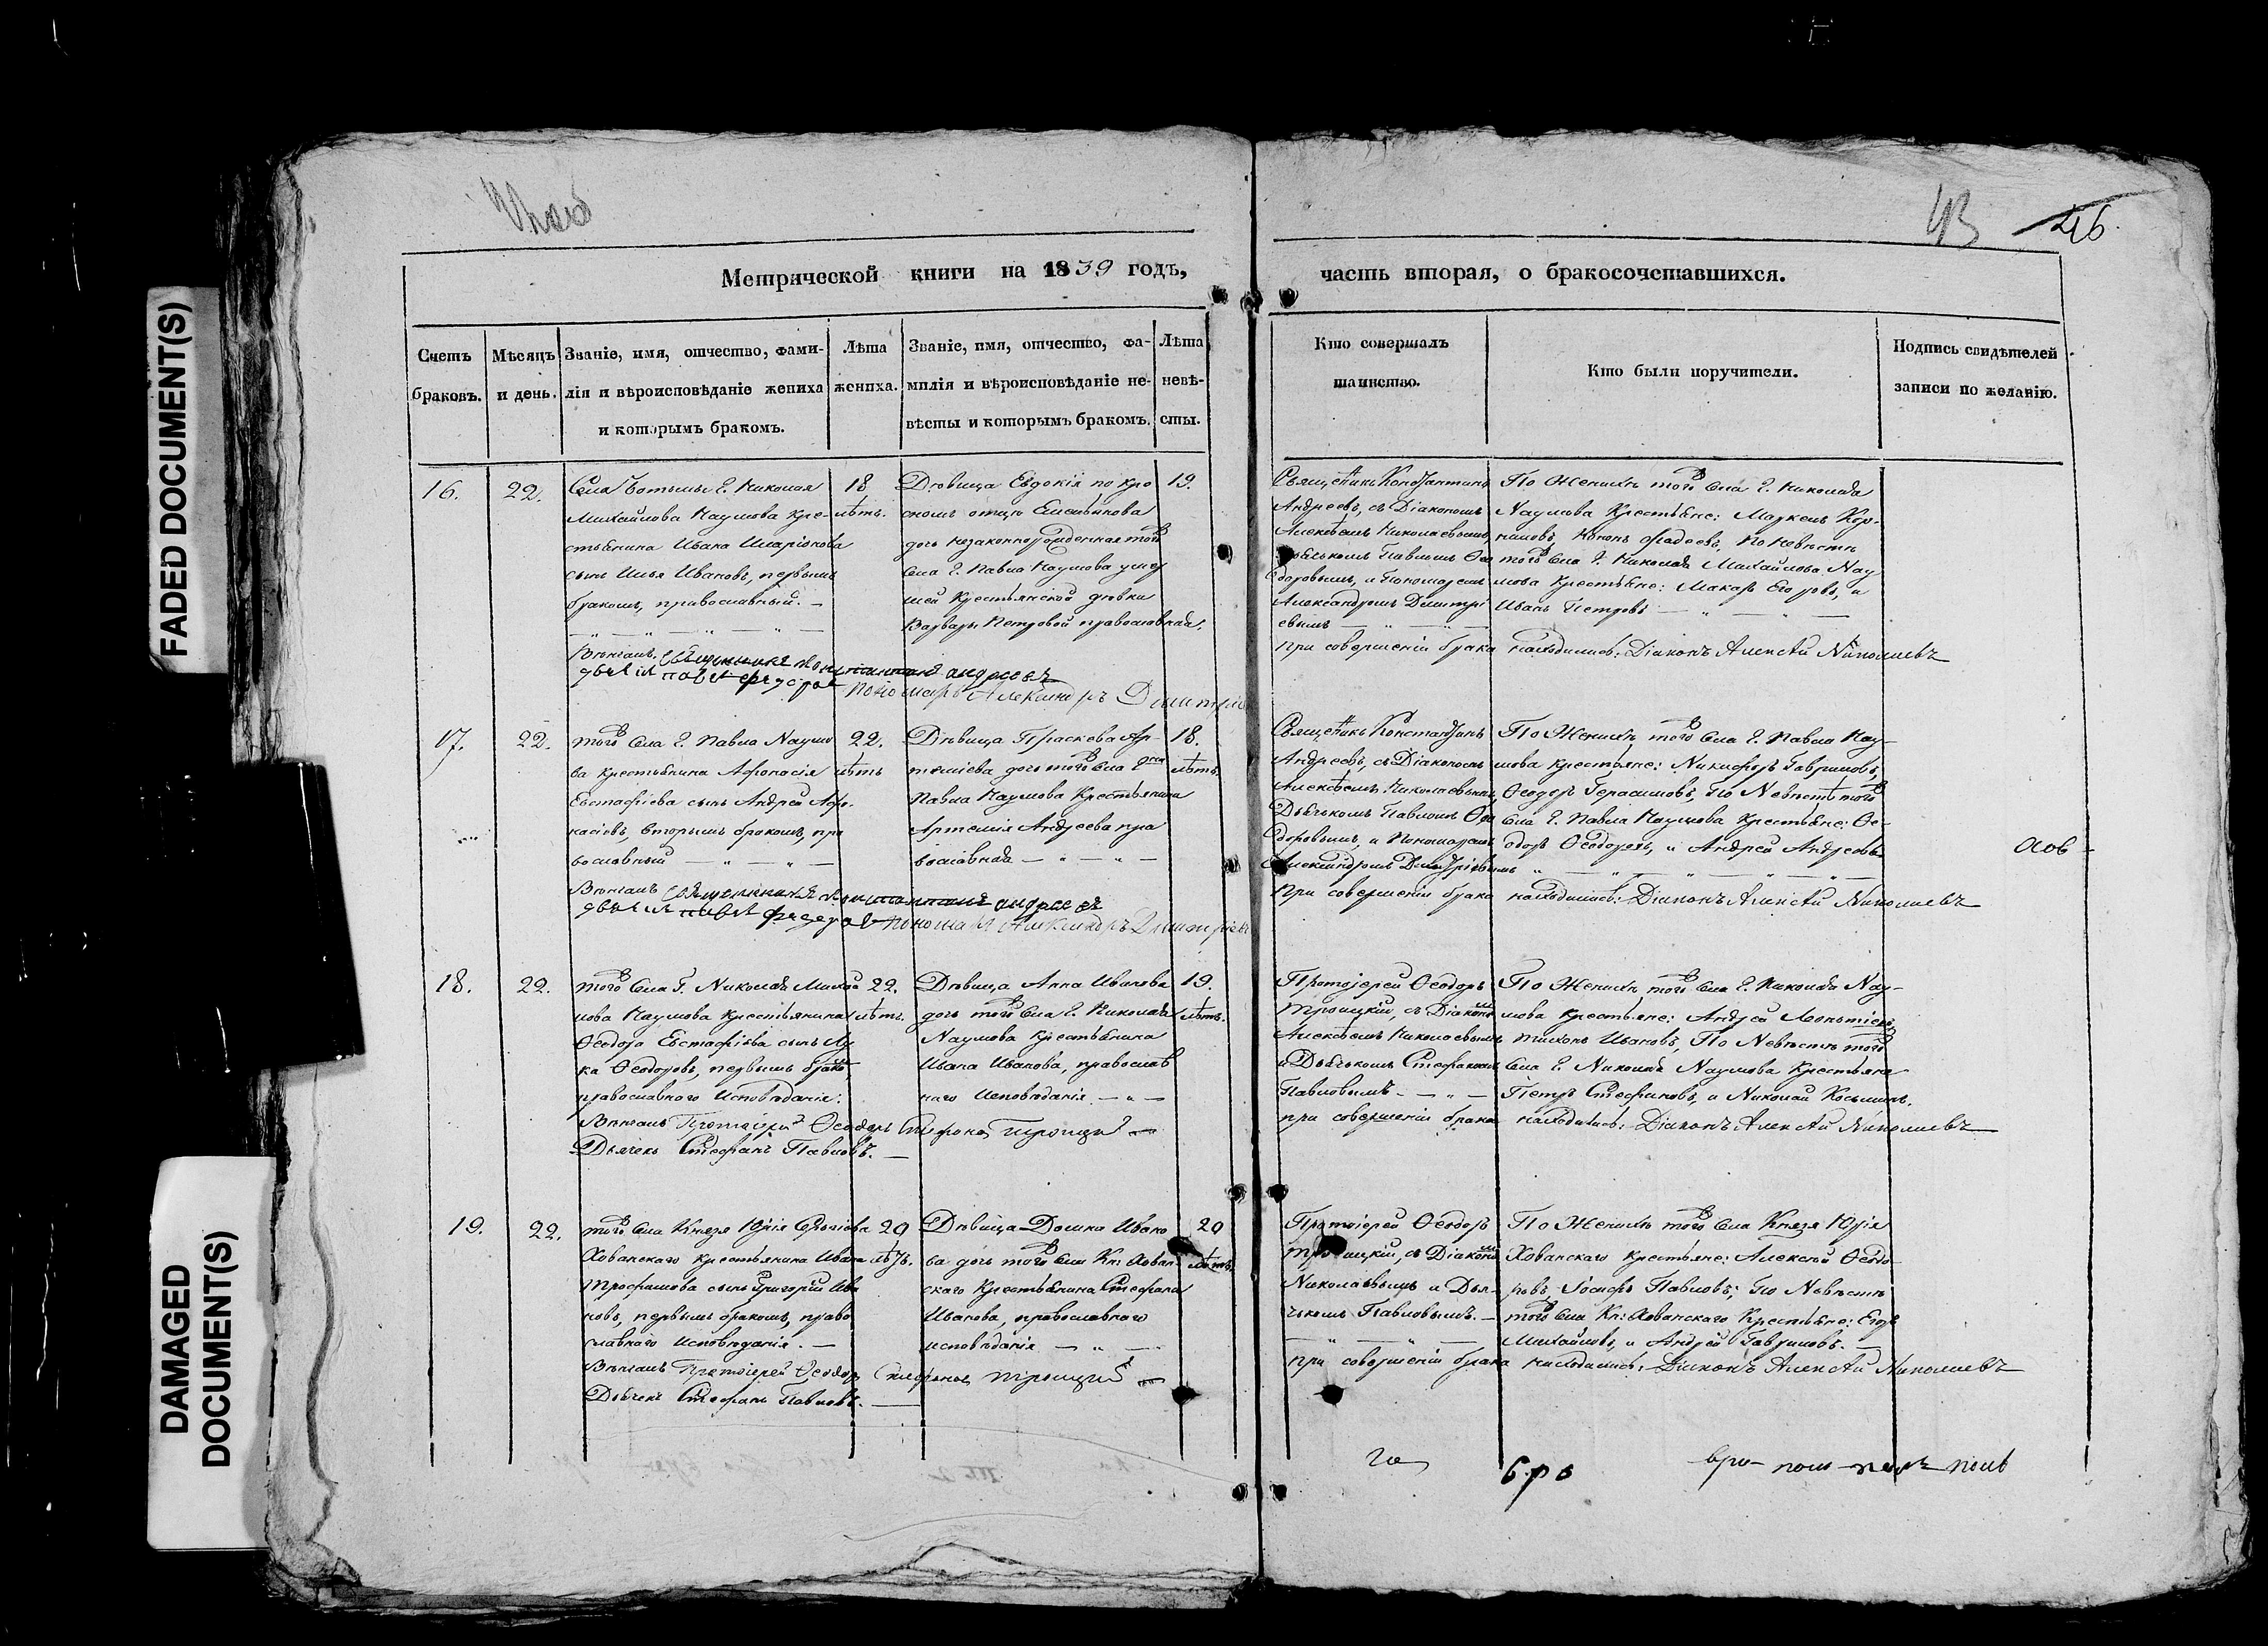 FADED DOCUMENT(S)
DAMAGED
DOCUMENT(S)
43 46.
Метрической книги на 1839 годъ,
часть вторая, о бракосочетавшихся.
Счетъ
браковъ.
Мѣсяцъ
и день.
Званіе, имя, отчество, фами-
лія и вѣроисповѣданіе жениха
и которымъ бракомъ.
Лѣта
жениха.
Званіе, имя, отчество, фа-
милія и вѣроисповѣданіе не-
вѣсты и которымъ бракомъ.
Лѣта
невѣ-
сты.
Кто совершалъ
таинство.
Кто были поручители.
Подпись свидѣтелей
записи по желанію.
16.
22.
Села Г. Николая
Михайлова Наумова кре-
стьянина Ивана Иларіонова
сынъ Илья Ивановъ, первымъ
бракомъ, православный. —
18
лѣтъ.
Дѣвица Евдокія по кре
сном отцу Емельянова
дочь незаконнорожденная того
села Г. Павла Наумова умер
шей крестьянской дѣвки
Варвары Петровой православная.
19.
Священникъ Константинъ
Андреевъ, съ Діакономъ
Алексѣемъ Николаевымъ,
Дьячкомъ Павломъ Ѳео
доровымъ, и Пономаремъ
Александромъ Димитрі
евымъ
По Женихѣ того села Г. Николая
Наумова Крестьяне: Маркелъ Кор-
ниловъ, Кононъ Фадеевъ, По Невѣстѣ
того села Г. Николая Михайлова Нау
мова Крестьяне: Макаръ Егоровъ, и
Иванъ Петровъ
Вѣнчалъ Священникъ Константинъ Андреевъ
дьячекъ Павелъ Федоровъ Пономарь Александръ Димитріев
при совершеніи брака находились: Діаконъ Алексѣй Николаевъ
17.
22.
того села Г. Павла Наумо
ва крестьянина Афонасія
Евстафіева сынъ Андрей Афо-
насіевъ, вторымъ бракомъ, пра
вославный
22.
лѣтъ
Дѣвица Праскева Ар-
темиева дочь того села Гдна
Павла Наумова Крестьянина
Артемія Андреева пра
вославная
18.
лѣтъ.
Священникъ Константинъ
Андреевъ, съ Діакономъ
Алексѣемъ Николаевымъ,
Дьячкомъ Павломъ Ѳео
доровымъ, и Пономаремъ
Александромъ Димитріевымъ
По Женихѣ того села Г. Павла Нау-
мова крестьяне: Никифоръ Гавриловъ,
Ѳеодоръ Герасимовъ, По Невѣстѣ того
села Г. Павла Наумова Крестьяне: Ѳе-
одоръ Ѳеодоровъ, и Андрей Андреевъ
Вѣнчалъ Священникъ Константинъ Андреевъ
дьячекъ Павелъ Федоровъ Пономарь Александръ Димитріевъ
при совершеніи брака находились: Діаконъ Алексѣй Николаевъ
18.
22.
того села Г. Николая Михай
лова Наумова Крестьянина
Ѳеодора Евстафіева сынъ Лу
ка Ѳеодоровъ, первымъ бракомъ,
православного Исповѣданія.
22.
лѣтъ.
Дѣвица Анна Иванова
дочь того села Г. Николая
Наумова Крестьянина
Ивана Иванова, православ
наго Исповѣданія
19.
лѣтъ.
Протоіерей Ѳеодоръ
Троицкій, съ Діакономъ
Алексѣемъ Николаевымъ
и Дьячкомъ Стефаномъ
Павловымъ
По Женихѣ того села Г. Николая Нау-
мова крестьяне: Андрей Леонтіевъ,
Тихонъ Ивановъ, По Невѣстѣ того
села Г. Николая Наумова Крестьяне
Петръ Стефановъ, и Николай Косьминъ.
Вѣнчалъ Протоіерей Ѳеодоръ Стефановъ Троицкій
Дьячекъ Стефанъ Павловъ.
при совершеніи брака находились: Діаконъ Алексѣй Николаевъ
19.
22.
того села Князя Юрія Сергіева
Хованскаго крестьянина Ивана
Трофимова сынъ Григорій Ива
новъ, первымъ бракомъ, право
славнаго Исповѣданія. —
20
лѣтъ.
Дѣвица Домна Ивано
ва дочь того села Кн: Хован-
скаго Крестьянина Стефана
Иванова, православного
исповѣданія
20
лѣтъ.
Протоіерей Ѳеодоръ
Троицкій, съ Діакономъ
Николаевымъ и Дья-
чкомъ Павловымъ. —
По Женихѣ того села Князя Юрія
Хованскаго крестьяне: Алексѣй Ѳеодо-
ровъ, Іосифъ Павловъ; По Невѣстѣ
того села Кн: Хованскаго Крестьяне: Егоръ
Михайловъ, и Андрей Гавриловъ.
Вѣнчалъ Протоіерей Ѳеодоръ Стефановъ Троицкій
Дьячекъ Стефанъ Павловъ.
при совершеніи брака находились: Діаконъ Алексѣй Николаевъ